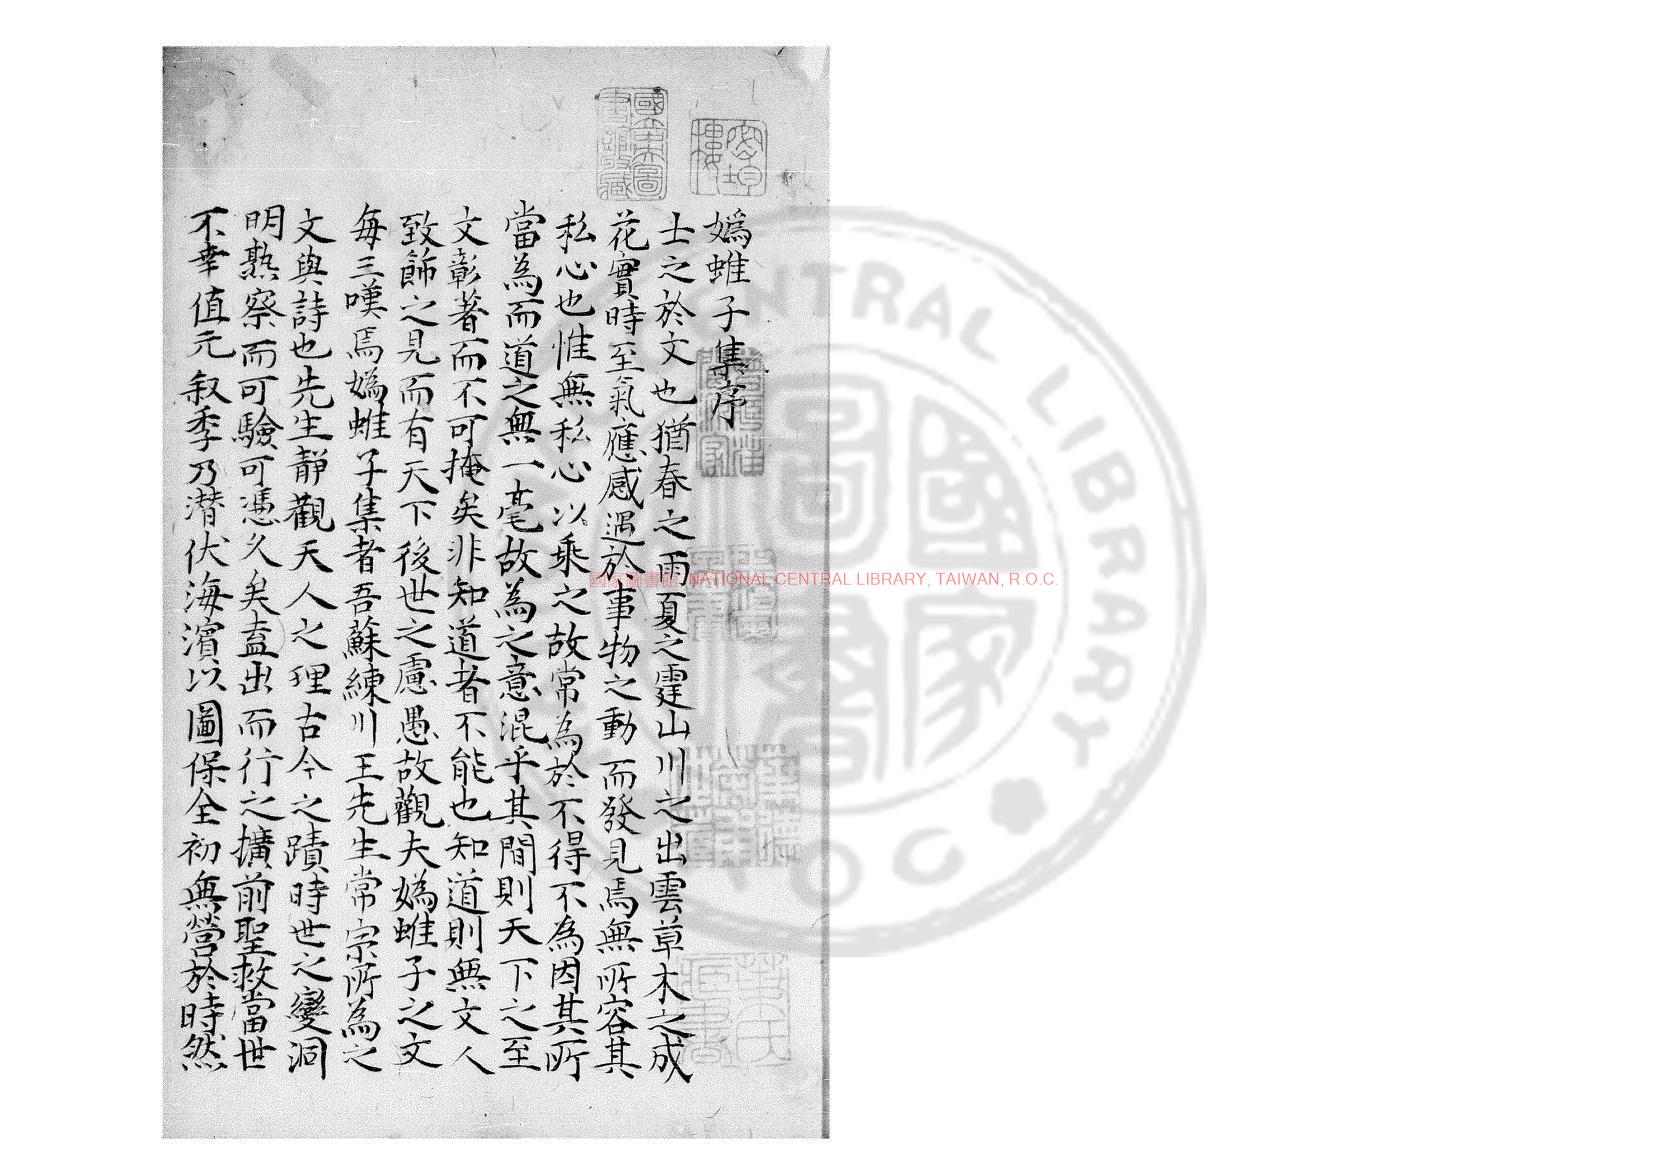 媯蜼子集序
士之於文也猶春之雨夏之霆山川之出雲草木之成
花實時至氣應感遇於事物之動而發見焉無所容其
私心也惟無私心以乘之故常為於不得不為因其所
當為而道之無一毫故為之意混乎其間則天下之至
文彰著而不可掩矣非知道者不能也知道則無文人
致飾之見而有天下後世之慮愚故觀夫媯蜼子之文
每三嘆焉媯蜼子集者吾蘇練川王先生常宗所為之
文與詩也先生靜觀天人之理古今之蹟時世之變洞
明熟察而可驗可憑久矣盍出而行之擴前聖救當世
不幸值元叙季乃潛伏海濱以圖保全初無營於時然
國立中央圖書館收藏
密均樓
國家圖書館, NATIONAL CENTRAL LIBRARY, TAIWAN, R.O.C.
NATIONAL CENTRAL LIBRARY R.O.C.
國家圖書館